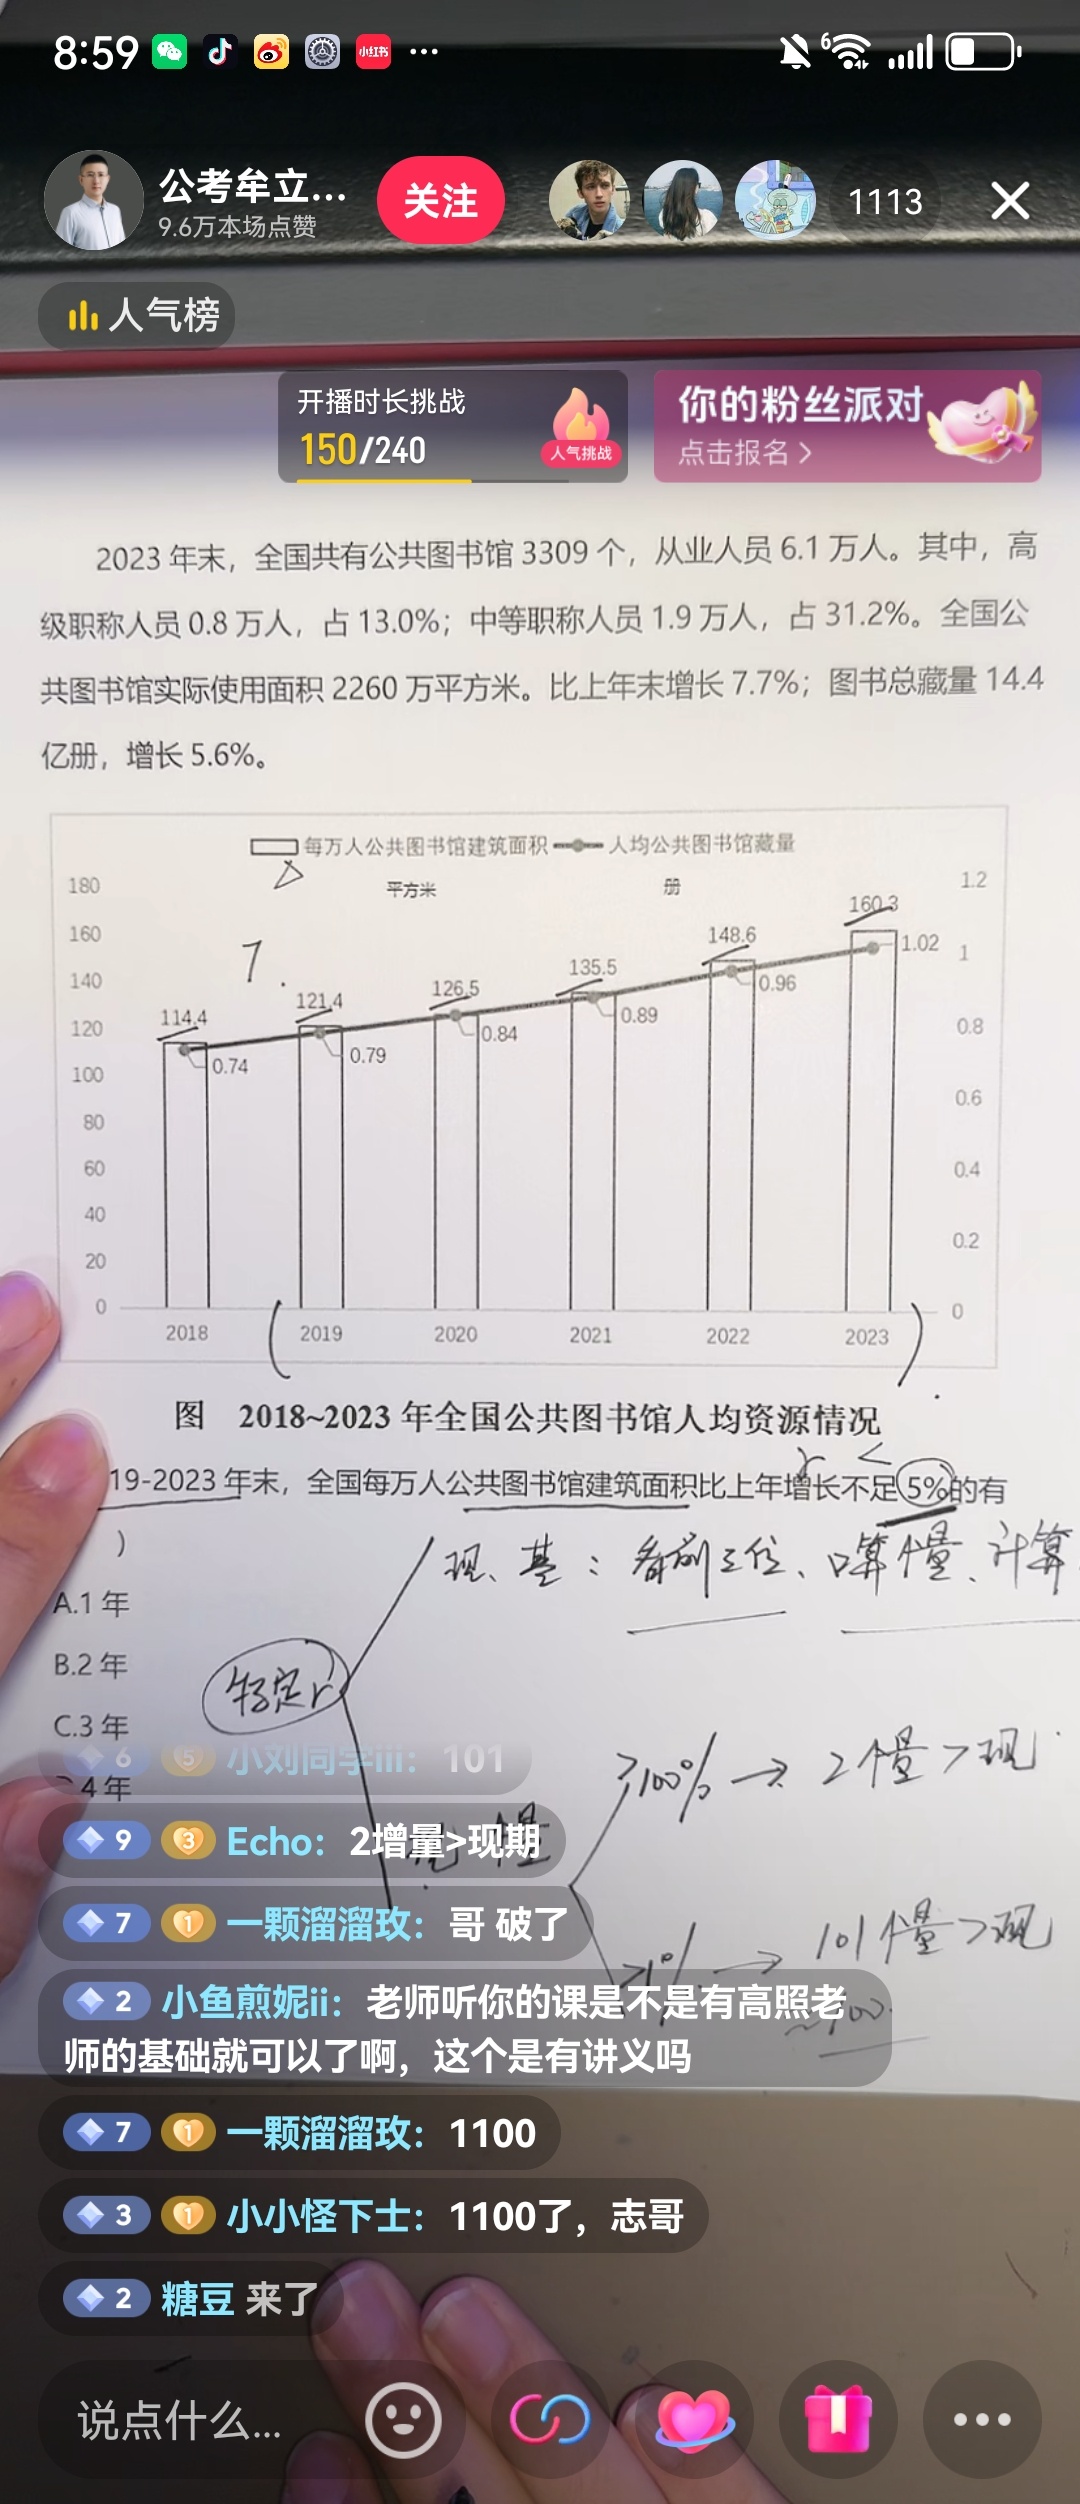 8:59
小红书
6
公考牟立...
9.6万本场点赞
关注
1113
人气榜
开播时长挑战
150/240
人气挑战
你的粉丝派对
点击报名
2023 年末，全国共有公共图书馆 3309 个，从业人员 6.1 万人。其中，高
级职称人员 0.8 万人，占 13.0%；中等职称人员 1.9 万人，占 31.2%。全国公
共图书馆实际使用面积 2260 万平方米。比上年末增长 7.7%；图书总藏量 14.4
亿册，增长 5.6%。
每万人公共图书馆建筑面积 人均公共图书馆藏量
平方米 册
180 1.2
160 1
140 0.8
120 0.6
100 0.4
80 0.2
60 0
40
20
0
114.4 121.4 126.5 135.5 148.6 160.3
0.74 0.79 0.84 0.89 0.96 1.02
7.
2018 2019 2020 2021 2022 2023
图 2018~2023 年全国公共图书馆人均资源情况
r <
19-2023 年末，全国每万人公共图书馆建筑面积比上年增长不足 5%的有
)
现、基：看前三位、口算增量、计算
A.1 年
B.2 年
C.3 年
4 年
特定r
>100% → 2增量>现
>1% → 101增量>现
~100
6 5 小刘同学iii： 101
9 3 Echo： 2增量>现期
7 1 一颗溜溜玫： 哥 破了
2 小鱼煎妮ii： 老师听你的课是不是有高照老
师的基础就可以了啊，这个是有讲义吗
7 1 一颗溜溜玫： 1100
3 1 小小怪下士： 1100了，志哥
2 糖豆 来了
说点什么...